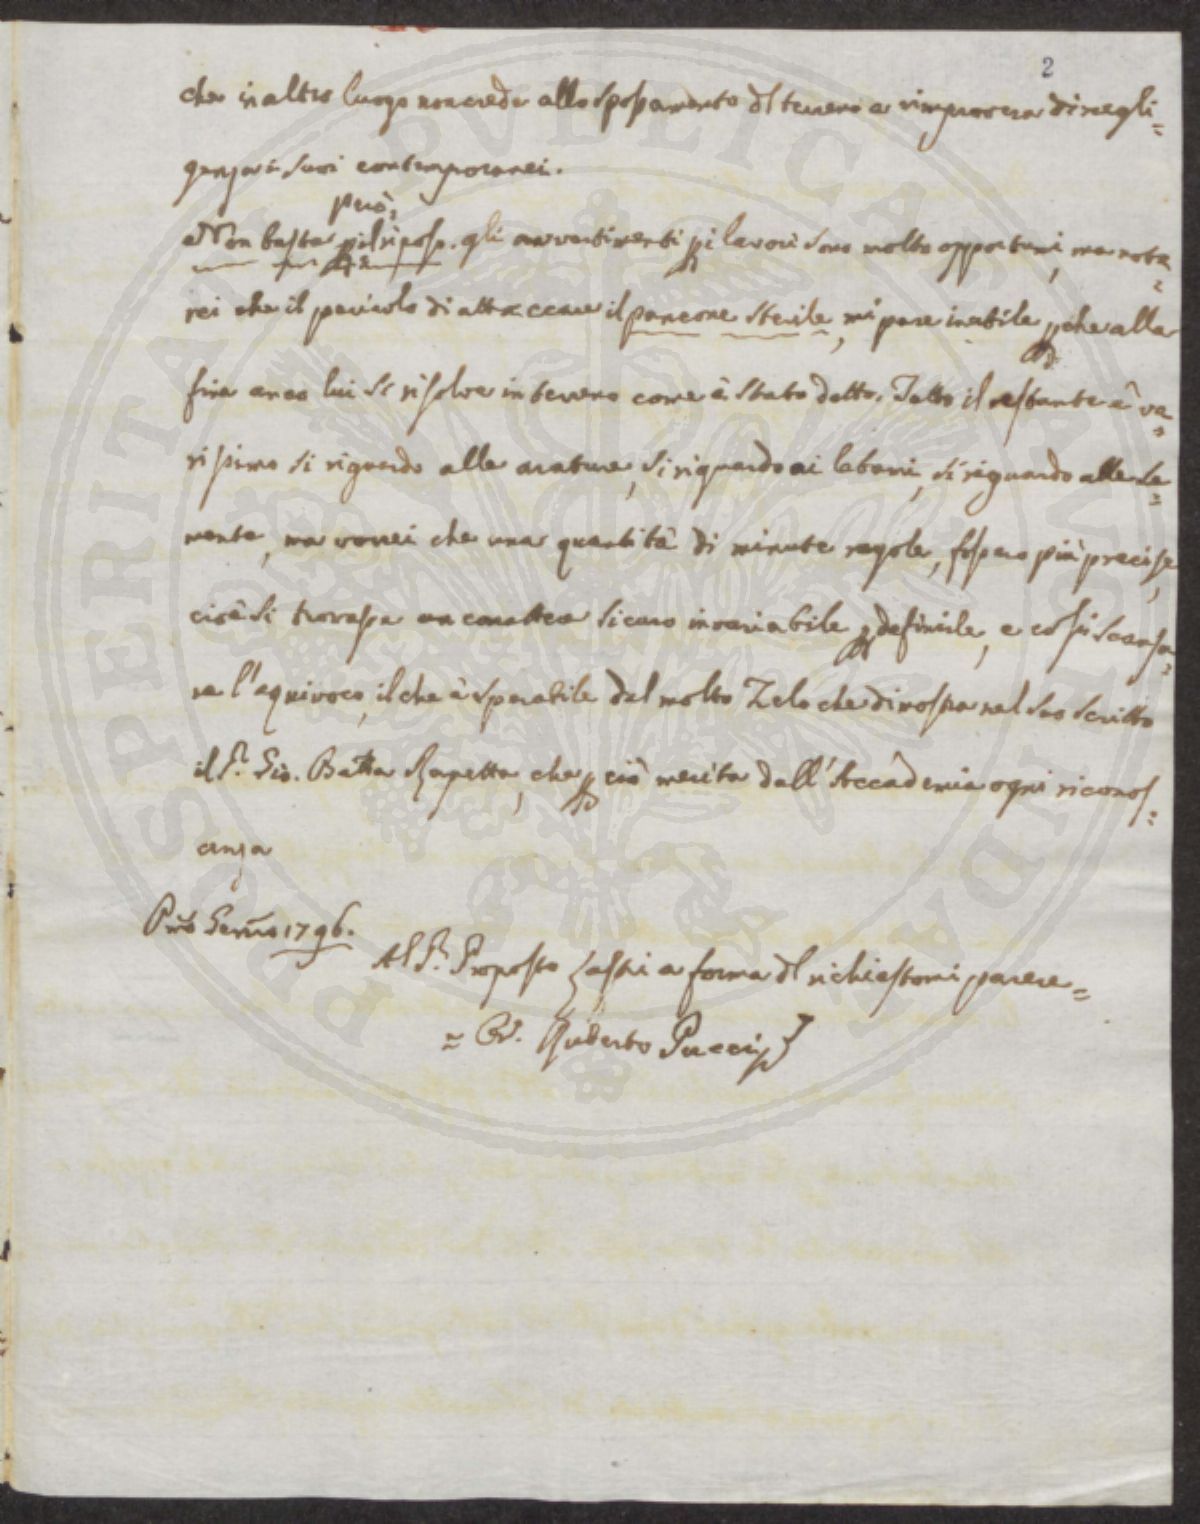 2
che in altro luogo non crede allo spossamento del terreno e rimprovera di negli=
genza i suoi contemporanei.
però,
Non basta il riposo. gli avvertimenti p i lavori sono molto opportuni, ma note=
rei che il pericolo di attaccare il pancone sterile, mi pare inutile pche alla
fine anco lui si risolve in terreno come è stato detto. Tutto il restante è ve=
rissimo si riguardo alle arature, si riguardo ai letami, si riguardo alle se=
mente, ma vorrei che una quantità di minute regole, fossero più precise,
cioè si trovasse un carattere sicuro invariabile p definirle, e così scansa=
re l'equivoco, il che è sperabile dal molto Zelo che dimostra nel suo scritto
il Sr. Gio. Batta Scapetta, che p ciò merita dall'Accademia ogni riconos=
cenza
Pmo Gennaio 1796.
Al Sr. Proposto Lastri a forma del richiestomi parere=
= Cav. Ruberto Pucci
PVBLICAE PROSPERITATIS